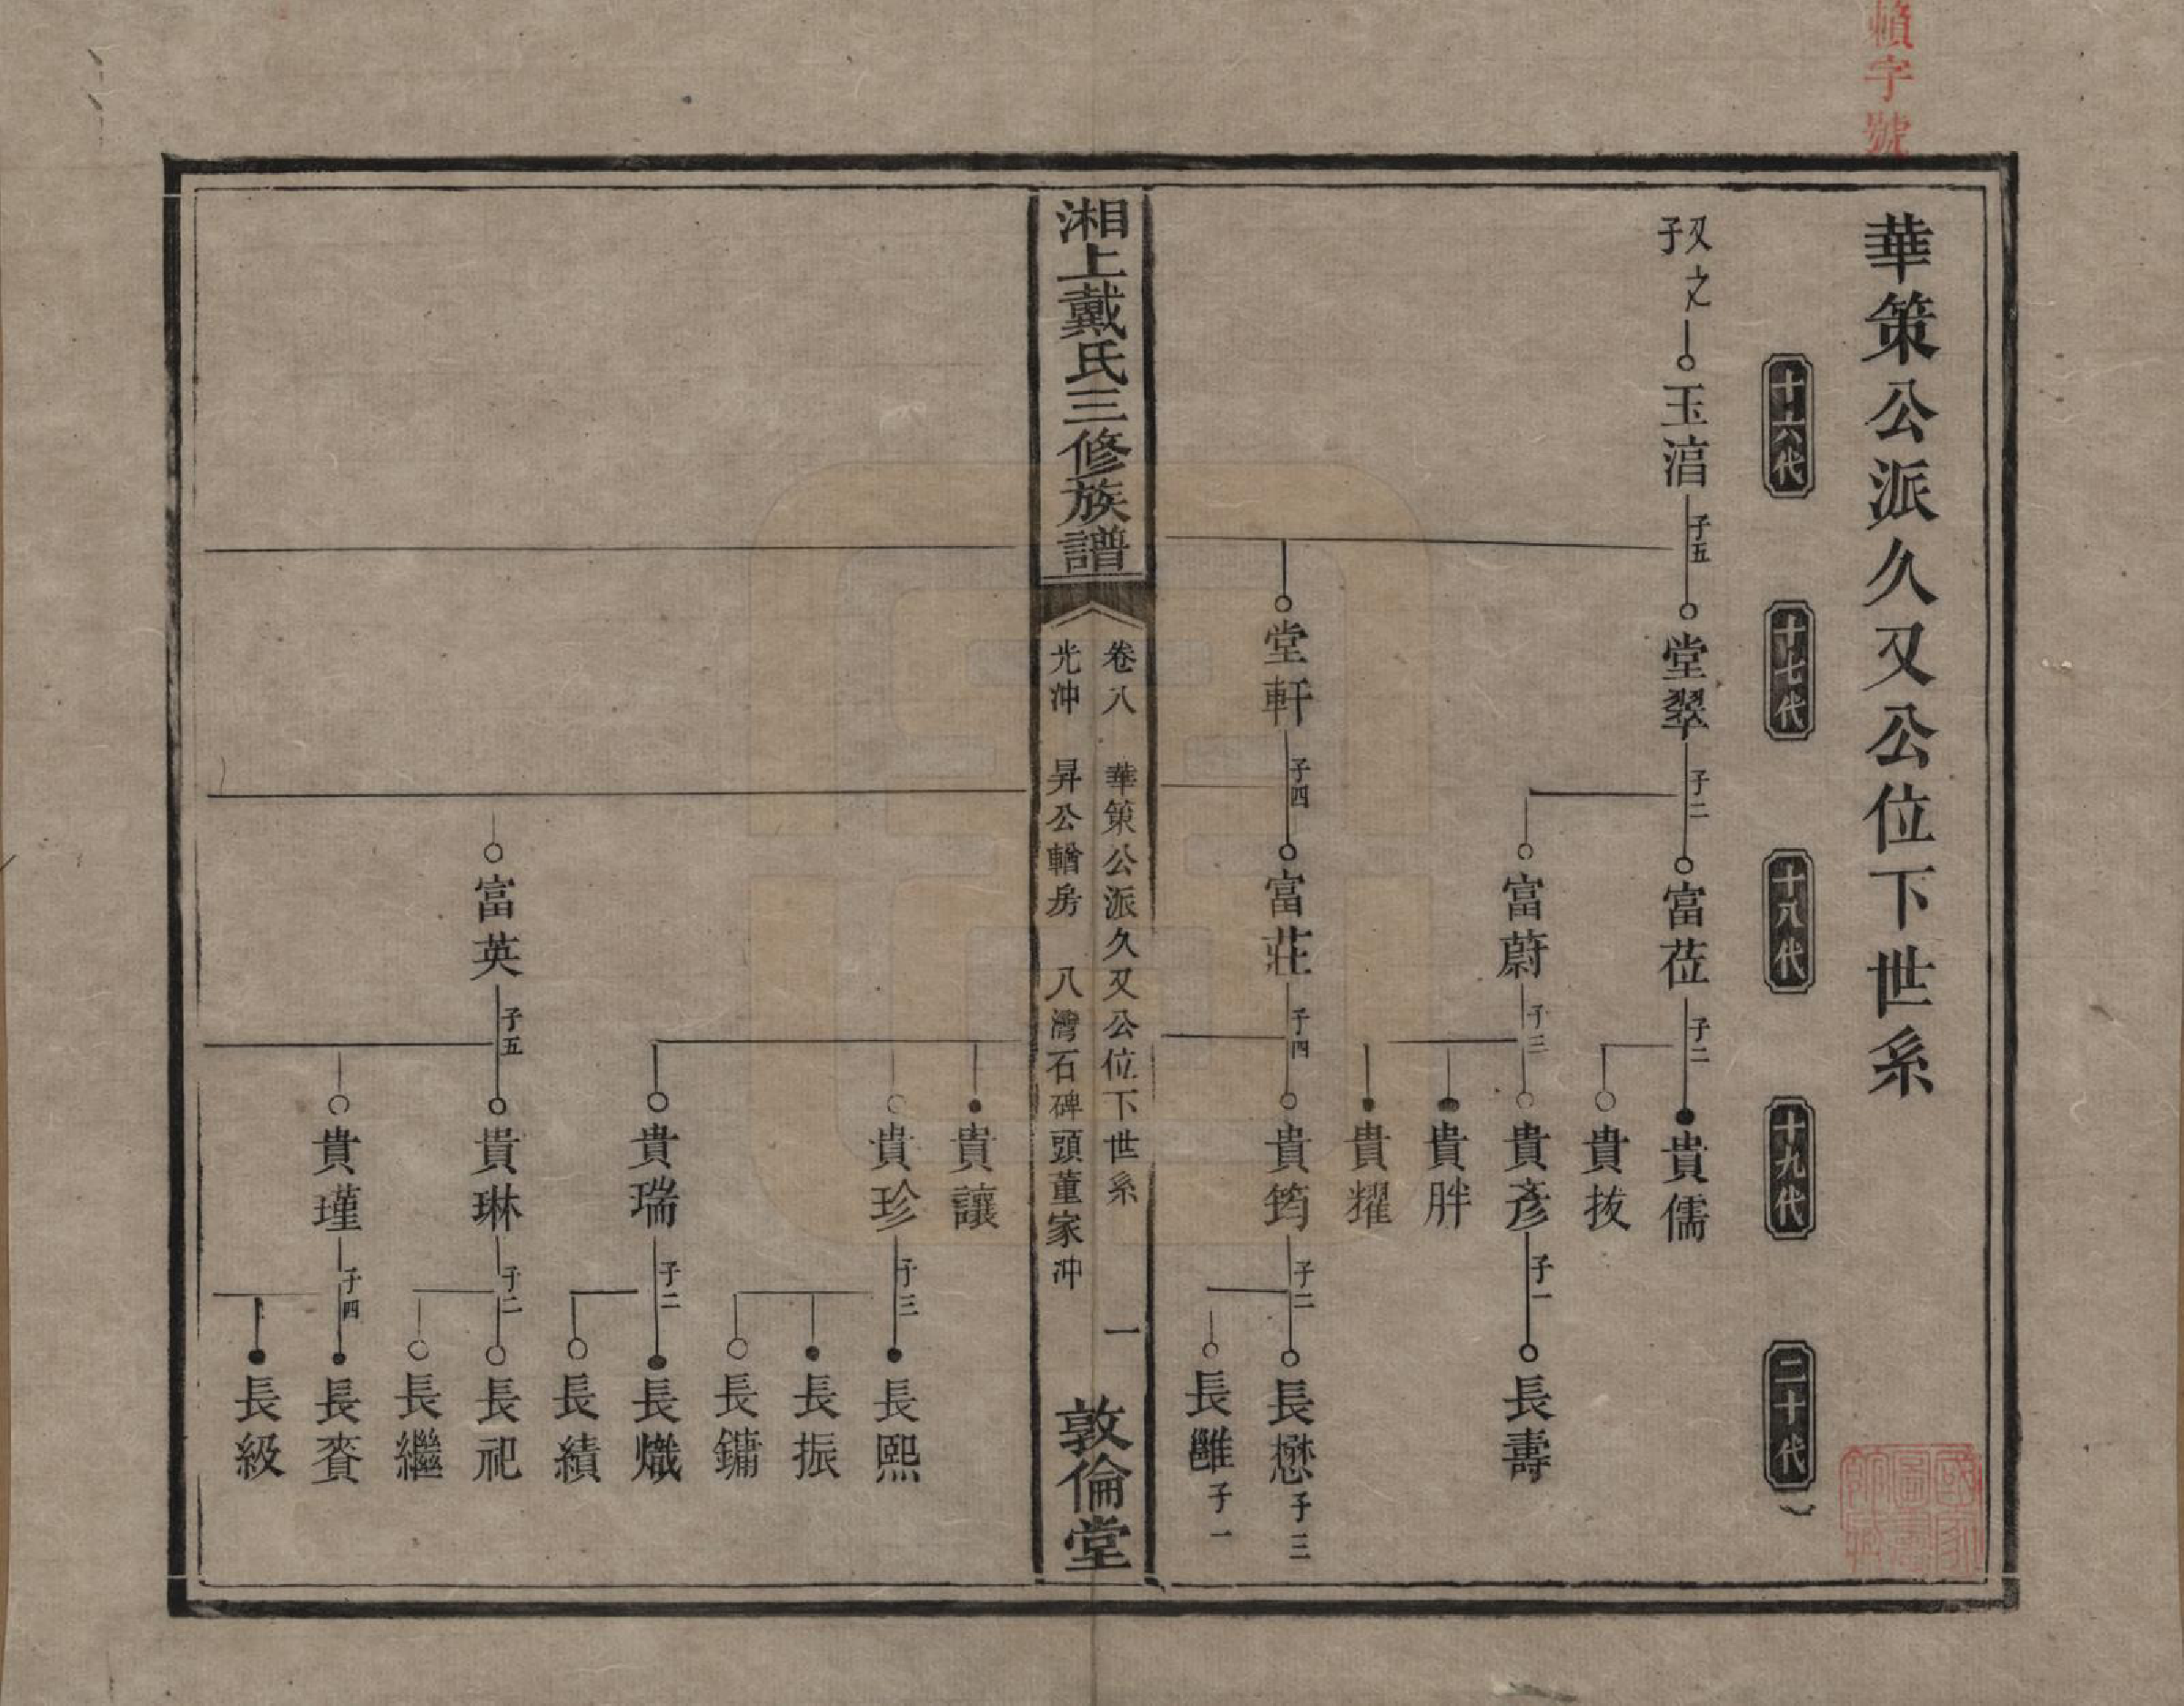 字號
華策公派久又公位下世系
十六代
十七代
十八代
十九代
二十代
又之子
玉湇
子五
堂翠
子二
富莅
子二
貴儒
貴拔
富蔚
子三
貴彥
子一
長壽
貴胖
貴耀
堂軒
子四
富莊
子四
貴筠
子二
長懋
子三
長雝
子一
湘上戴氏三修族譜
卷八 華策公派久又公位下世系
光冲 昇公輶房 八灣石碑頭董家冲
一
敦倫堂
貴讓
貴珍
子三
長熙
長振
長鏞
貴瑞
子二
長熾
長績
富英
子五
貴琳
子二
長祀
長繼
貴瑾
子四
長賚
長級